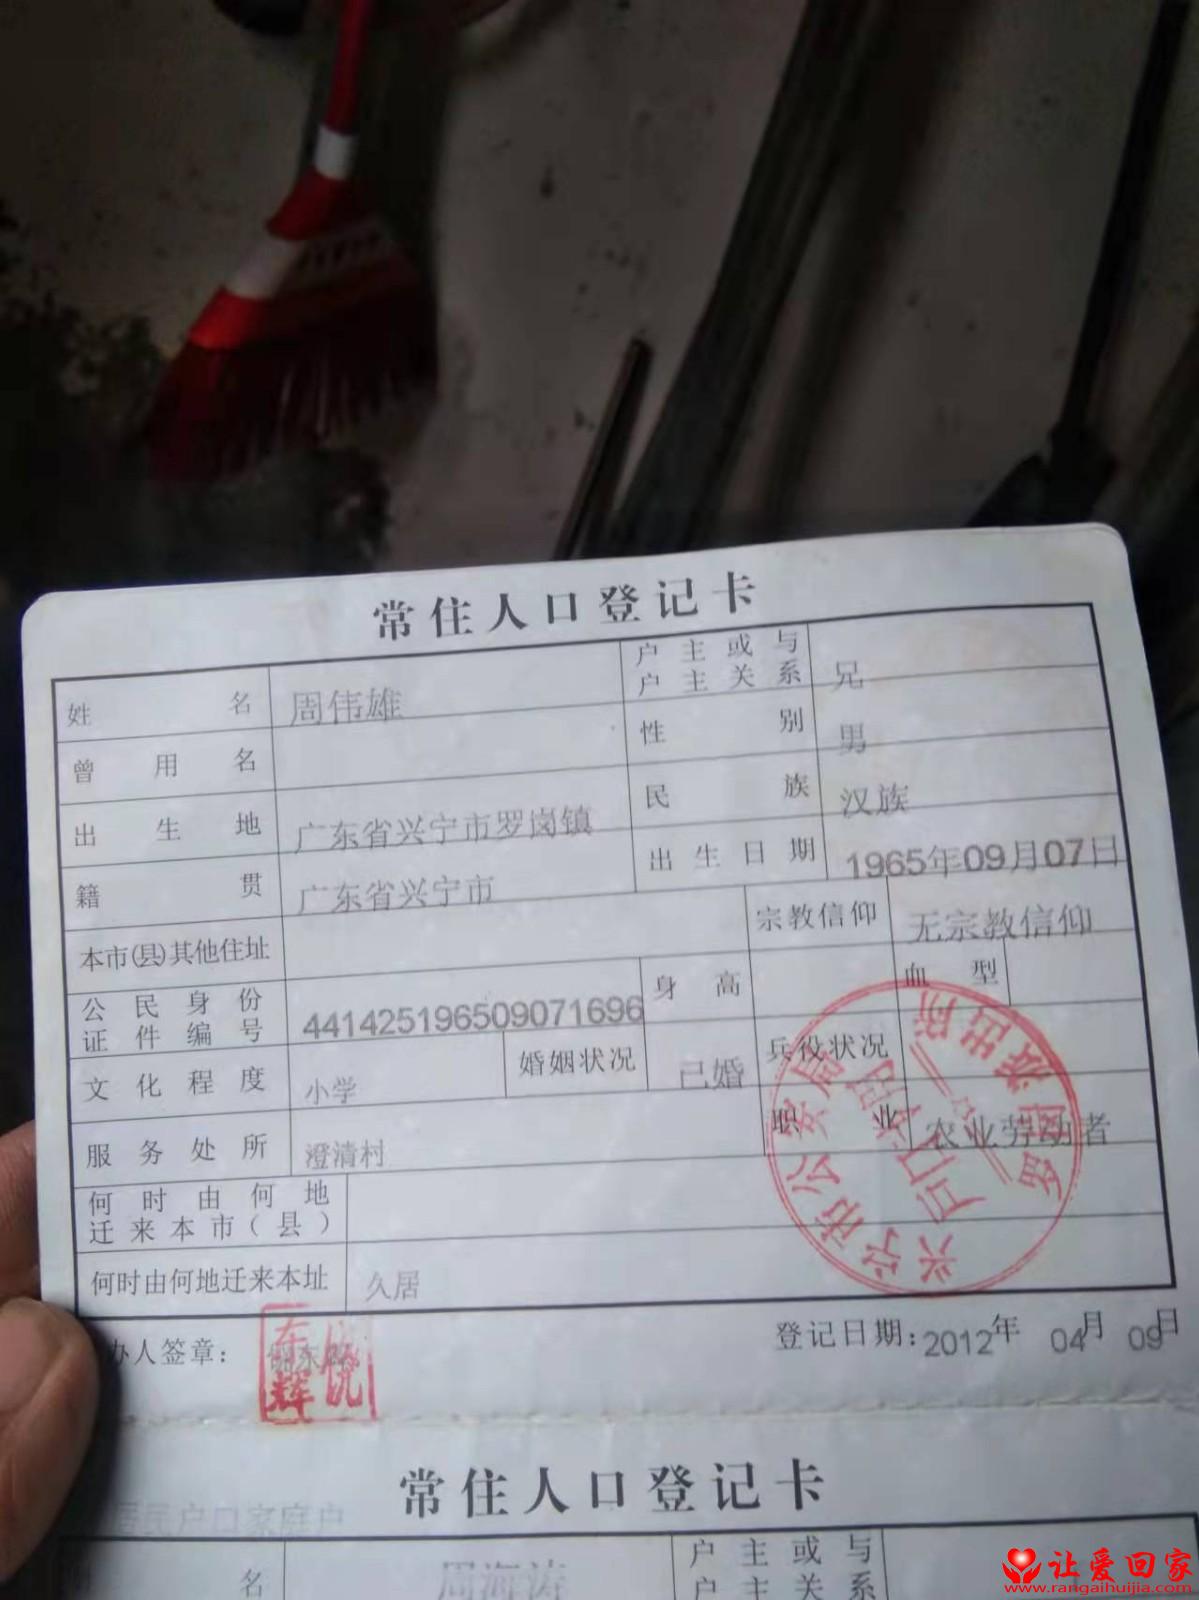 常住人口登记卡
姓名 周伟雄 户主或与户主关系 兄
曾用名 性别 男
出生地 广东省兴宁市罗岗镇 民族 汉族
籍贯 广东省兴宁市 出生日期 1965年09月07日
本市(县)其他住址 宗教信仰 无宗教信仰
公民身份证件编号 441425196509071696 身高 血型
文化程度 小学 婚姻状况 已婚 兵役状况
服务处所 澄清村 职业 农业劳动者
何时由何地迁来本市(县)
何时由何地迁来本址 久居
兴宁市公安局
派出所
户口专用
办人签章:
东辉
登记日期:2012年 04月 09日
常住人口登记卡
居民户口家庭户
名 周海涛 户主或与
户主关系
让爱回家
www.rangaihuijia.com